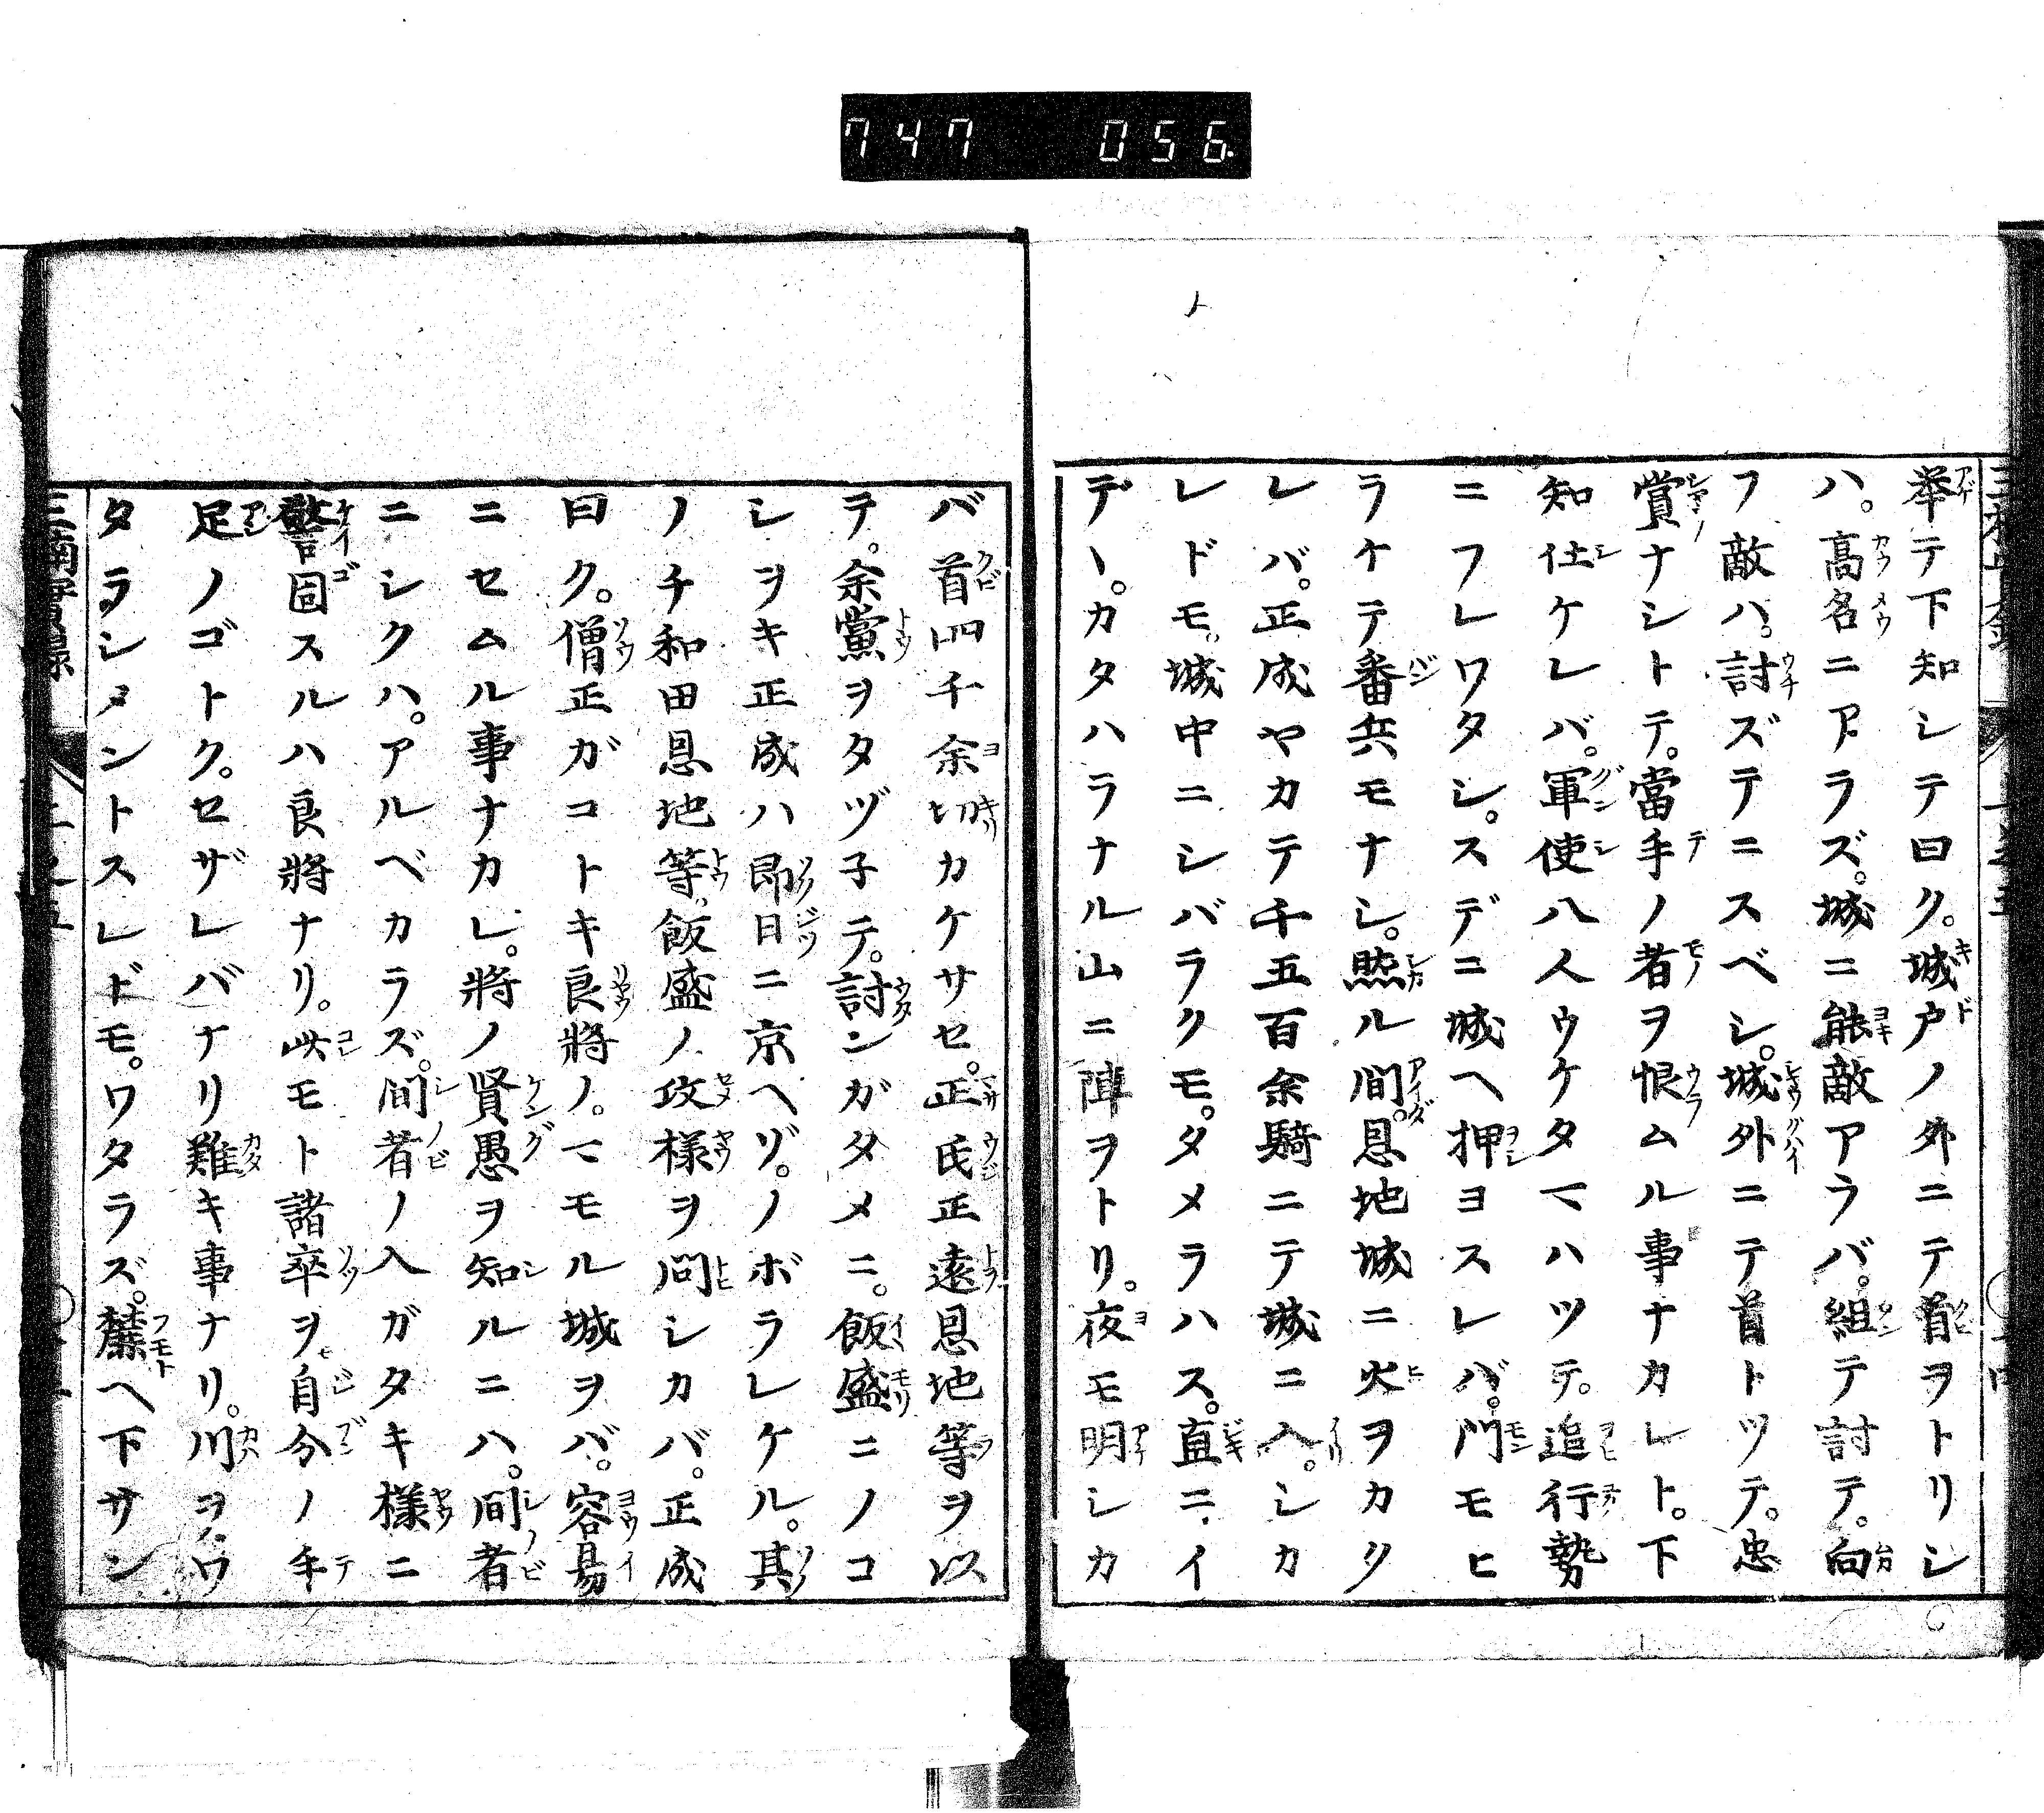 747 056
挙テ下知シテ曰ク。城戸ノ外ニテ首ヲトリシ
ハ。高名ニアラズ。城ニ能敵アラバ。組テ討テ。向
フ敵ハ。討ズテニスベシ。城外ニテ首トツテ。忠
賞ナシトテ。當手ノ者ヲ恨ムル事ナカレト。下
知仕ケレバ。軍使八人ウケタマハツテ。追行勢
ニフレワタシ。スデニ城ヘ押ヨスレバ。門モヒ
ラケテ番兵モナシ。然ル間。恩地城ニ火ヲカク
レバ。正成ヤカテ千五百余騎ニテ城ニ入。シカ
レドモ。城中ニシバラクモ。タメラハス。直ニイ
デヽ。カタハラナル山ニ陣ヲトリ。夜モ明シカ
バ首四千余切カケサセ。正氏正遠恩地等ヲ以
テ。余黨ヲタヅ子テ。討ンガタメニ。飯盛ニノコ
シヲキ正成ハ即日ニ京ヘゾ。ノボラレケル。其
ノチ和田恩地等。飯盛ノ攻様ヲ問シカバ。正成
曰ク。僧正ガコトキ良將ノ。マモル城ヲバ。容易
ニセムル事ナカレ。將ノ賢愚ヲ知ルニハ。間者
ニシクハ。アルベカラズ。間者ノ入ガタキ様ニ
警固スルハ良將ナリ。此モト諸卒ヲ自分ノ手
足ノゴトク。セザレバナリ難キ事ナリ。川ヲワ
タラシメントスレドモ。ワタラズ。麓ヘ下サン